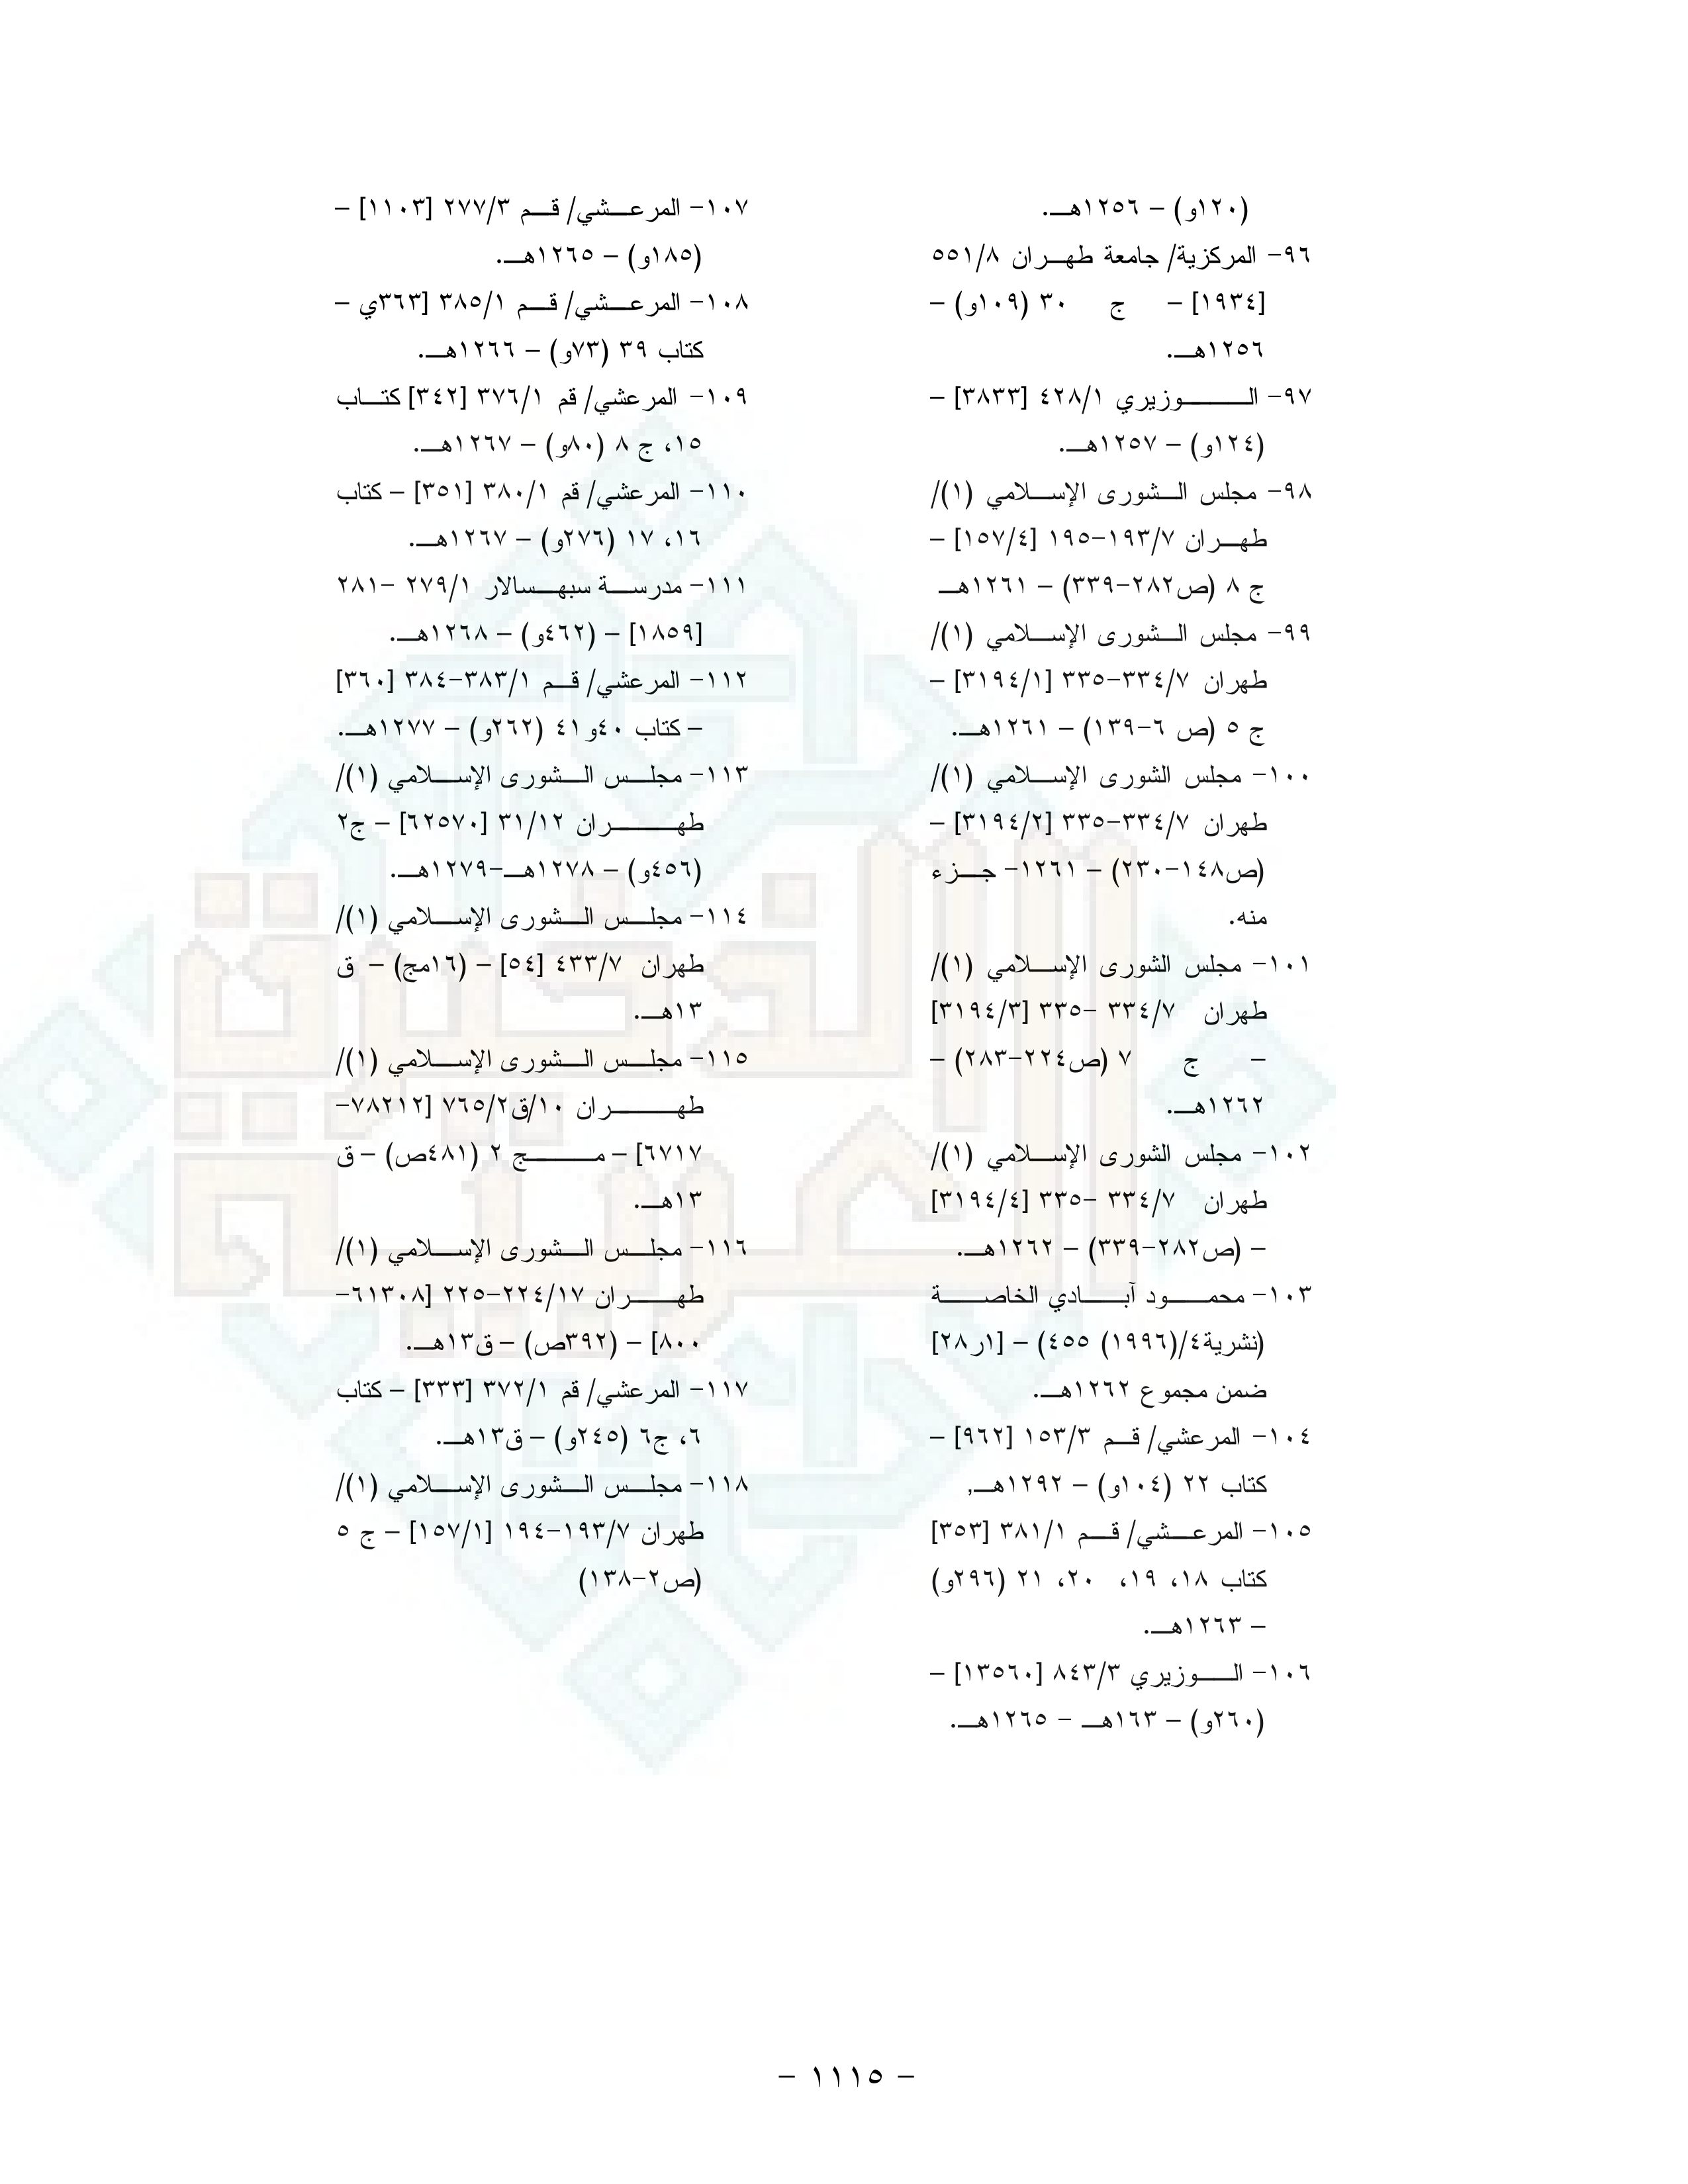 (١٢٠و) – ١٢٥٦هـ.
٩٦- المركزية/ جامعة طهران ٥٥١/٨
[١٩٣٤] – ج ٣٠ (١٠٩و) –
١٢٥٦هـ.
٩٧- الوزيري ٤٢٨/١ [٣٨٣٣] –
(١٢٤و) – ١٢٥٧هـ.
٩٨- مجلس الشورى الإسلامي (١)/
طهران ١٩٣/٧-١٩٥ [١٥٧/٤] –
ج ٨ (ص٢٨٢-٣٣٩) – ١٢٦١هـ
٩٩- مجلس الشورى الإسلامي (١)/
طهران ٣٣٤/٧-٣٣٥ [٣١٩٤/١] –
ج ٥ (ص ٦-١٣٩) – ١٢٦١هـ.
١٠٠- مجلس الشورى الإسلامي (١)/
طهران ٣٣٤/٧-٣٣٥ [٣١٩٤/٢] –
(ص١٤٨-٢٣٠) – ١٢٦١- جزء
منه.
١٠١- مجلس الشورى الإسلامي (١)/
طهران ٣٣٤/٧ -٣٣٥ [٣١٩٤/٣]
– ج ٧ (ص٢٢٤-٢٨٣) –
١٢٦٢هـ.
١٠٢- مجلس الشورى الإسلامي (١)/
طهران ٣٣٤/٧ -٣٣٥ [٣١٩٤/٤]
– (ص٢٨٢-٣٣٩) – ١٢٦٢هـ.
١٠٣- محمود آبادي الخاصة
(نشرية٤/(١٩٩٦) ٤٥٥) – [١ر٢٨]
ضمن مجموع ١٢٦٢هـ.
١٠٤- المرعشي/ قم ١٥٣/٣ [٩٦٢] –
كتاب ٢٢ (١٠٤و) – ١٢٩٢هـ,
١٠٥- المرعشي/ قم ٣٨١/١ [٣٥٣]
كتاب ١٨، ١٩، ٢٠، ٢١ (٢٩٦و)
– ١٢٦٣هـ.
١٠٦- الوزيري ٨٤٣/٣ [١٣٥٦٠] –
(٢٦٠و) – ١٦٣هـ – ١٢٦٥هـ.
١٠٧- المرعشي/ قم ٢٧٧/٣ [١١٠٣] –
(١٨٥و) – ١٢٦٥هـ.
١٠٨- المرعشي/ قم ٣٨٥/١ [٣٦٣ي –
كتاب ٣٩ (٧٣و) – ١٢٦٦هـ.
١٠٩- المرعشي/ قم ٣٧٦/١ [٣٤٢] كتاب
١٥، ج ٨ (٨٠و) – ١٢٦٧هـ.
١١٠- المرعشي/ قم ٣٨٠/١ [٣٥١] – كتاب
١٦، ١٧ (٢٧٦و) – ١٢٦٧هـ.
١١١- مدرسة سبهسالار ٢٧٩/١ -٢٨١
[١٨٥٩] – (٤٦٢و) – ١٢٦٨هـ.
١١٢- المرعشي/ قم ٣٨٣/١-٣٨٤ [٣٦٠]
– كتاب ٤٠و٤١ (٢٦٢و) – ١٢٧٧هـ.
١١٣- مجلس الشورى الإسلامي (١)/
طهران ٣١/١٢ [٦٢٥٧٠] – ج٢
(٤٥٦و) – ١٢٧٨هـ-١٢٧٩هـ.
١١٤- مجلس الشورى الإسلامي (١)/
طهران ٤٣٣/٧ [٥٤] – (١٦مج) – ق
١٣هـ.
١١٥- مجلس الشورى الإسلامي (١)/
طهران ١٠/ق٧٦٥/٢ [٧٨٢١٢-
٦٧١٧] – مج ٢ (٤٨١ص) – ق
١٣هـ.
١١٦- مجلس الشورى الإسلامي (١)/
طهران ٢٢٤/١٧-٢٢٥ [٦١٣٠٨-
٨٠٠] – (٣٩٢ص) – ق١٣هـ.
١١٧- المرعشي/ قم ٣٧٢/١ [٣٣٣] – كتاب
٦، ج٦ (٢٤٥و) – ق١٣هـ.
١١٨- مجلس الشورى الإسلامي (١)/
طهران ١٩٣/٧-١٩٤ [١٥٧/١] – ج ٥
(ص٢-١٣٨)
الذخيرة
العربية
– ١١١٥ –